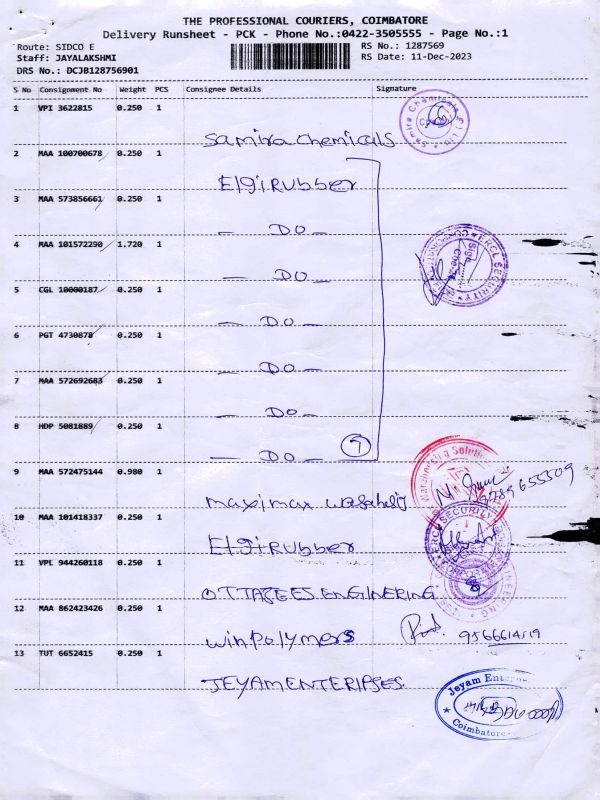 THE PROFESSIONAL COURIERS, COIMBATORE
Delivery Runsheet - PCK - Phone No.:0422-3505555 - Page No.:1
Route: SIDCO E RS No.: 1287569
Staff: JAYALAKSHMI RS Date: 11-Dec-2023
DRS No.: DCJB128756901
S No Consignment No Weight PCS Consignee Details Signature
1 VPI 3622815 0.250 1
samira chemicals
2 MAA 100700678 0.250 1
Elgi Rubber
3 MAA 573856661 0.250 1
- DO -
4 MAA 101572290 1.720 1
- DO -
5 CGL 10000187 0.250 1
- DO -
6 PGT 4730878 0.250 1
- DO -
7 MAA 572692683 0.250 1
- DO -
8 HDP 5081889 0.250 1
- DO - 7
9 MAA 572475144 0.980 1
maximax 9789655509
10 MAA 101418337 0.250 1
Elgi Rubber
11 VPL 944260118 0.250 1
OTTAJEES ENGINERING
12 MAA 862423426 0.250 1
winpolymers 9566614519
13 TUT 6652415 0.250 1
JEYAM ENTERIPSES
Jeyam Enter
Coimbatore
ERCL SECURITY
ERCL SECURITY